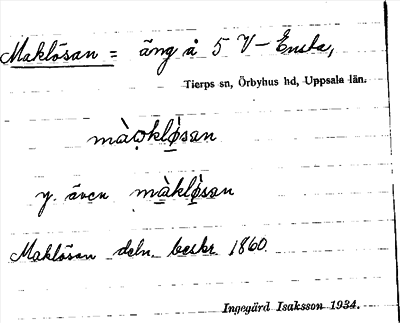 Maklösan = äng å 5 V – Ensta,
Tierps sn, Örbyhus hd, Uppsala län.
màọklö̀san
y. även màklö̀san
Maklösan deln. beskr. 1860.
Ingegärd Isaksson 1934.